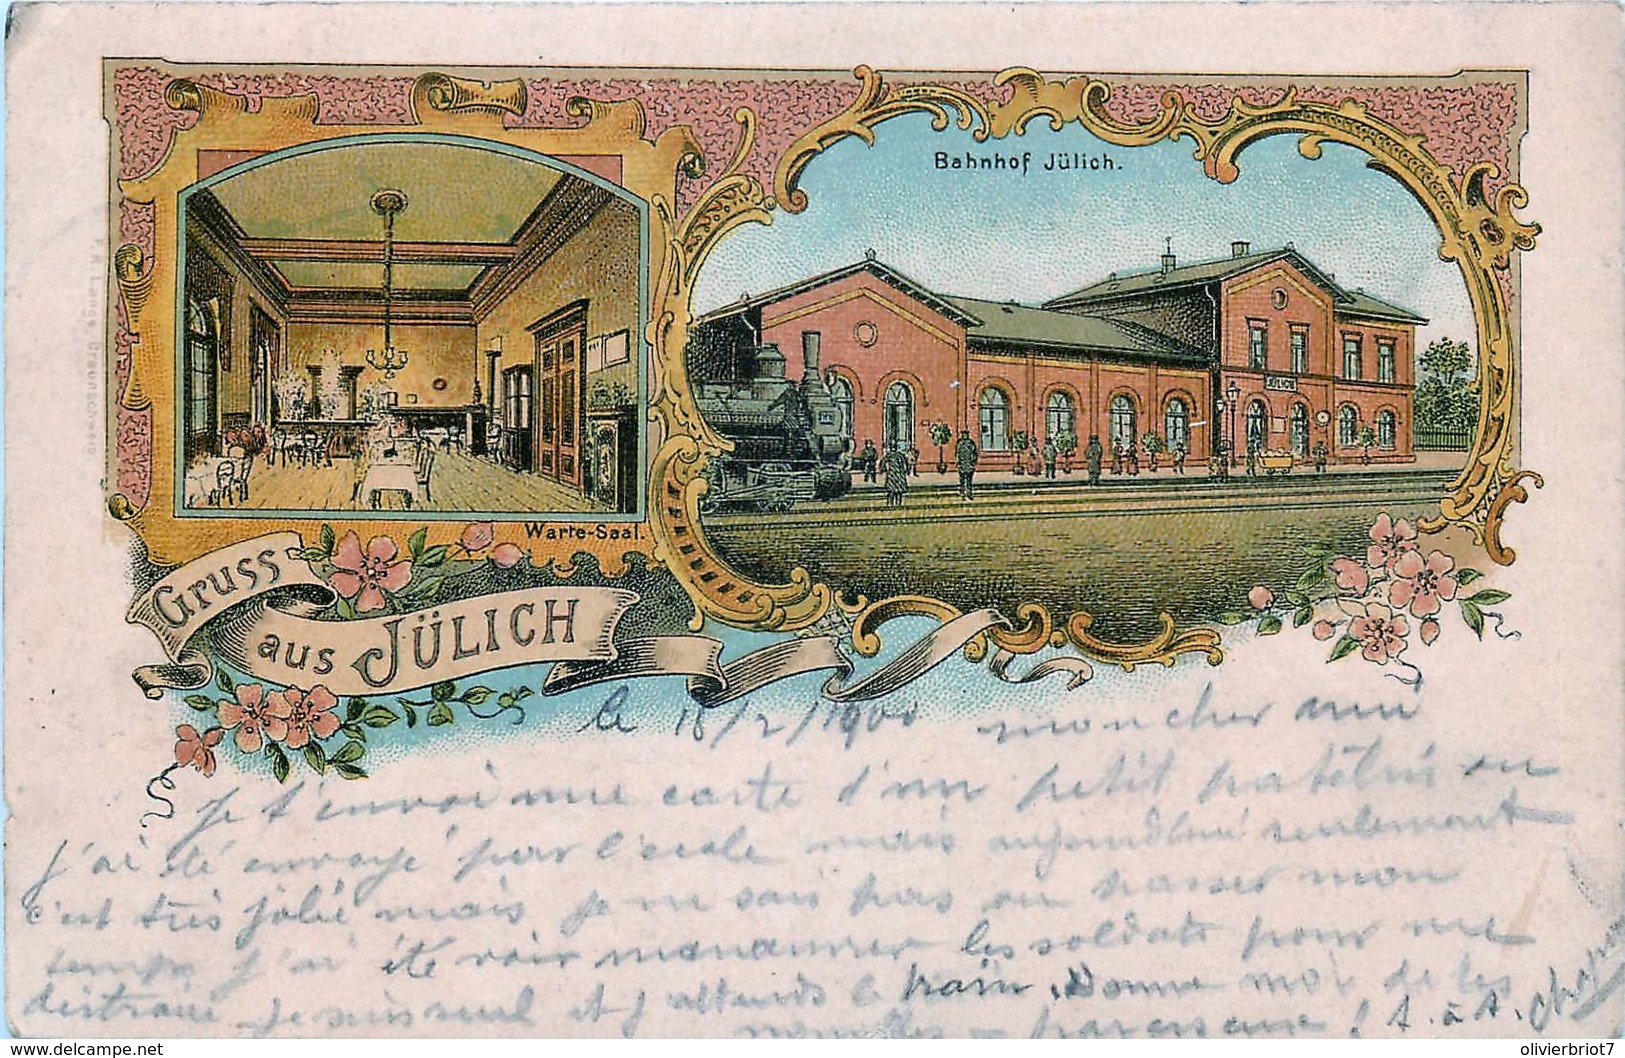 Bahnhof Jülich.
JÜLICH
Warte-Saal.
Gruss
aus JÜLICH
Lange, Braunschweig
le 18/2/1900 mon cher ami
je t'envoi une carte d'un petit patelin ou
j'ai été envoyé par l'ecole mais aujourd'hui seulement
c'est très jolie mais je ne sais pas ou passer mon
temps j'ai été voir manœuvrer les soldats pour me
distraire je suis seul et j'attends le train. Donne moi de tes
nouvelles - A. à A.
delcampe.net
olivierbriot7